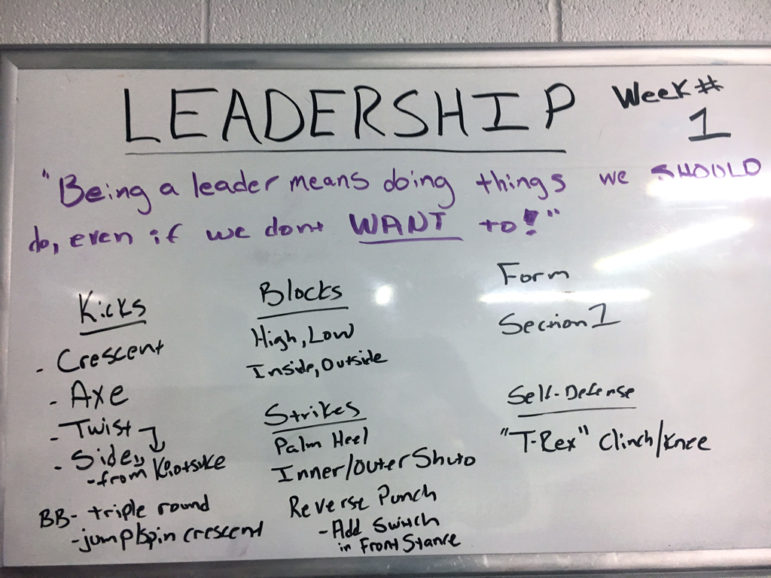 LEADERSHIP
Week #
1
"Being a leader means doing things we SHOULD
do, even if we dont WANT to!"
Kicks
- Crescent
- Axe
- Twist
- Side
- from Kiotsuke
BB- triple round
- jump/spin crescent
Blocks
High, Low
Inside, Outside
Strikes
Palm Heel
Inner/Outer Shuto
Reverse Punch
- Add Switch
in Front Stance
Form
Section 1
Self-Defense
"T-Rex" Clinch/Knee